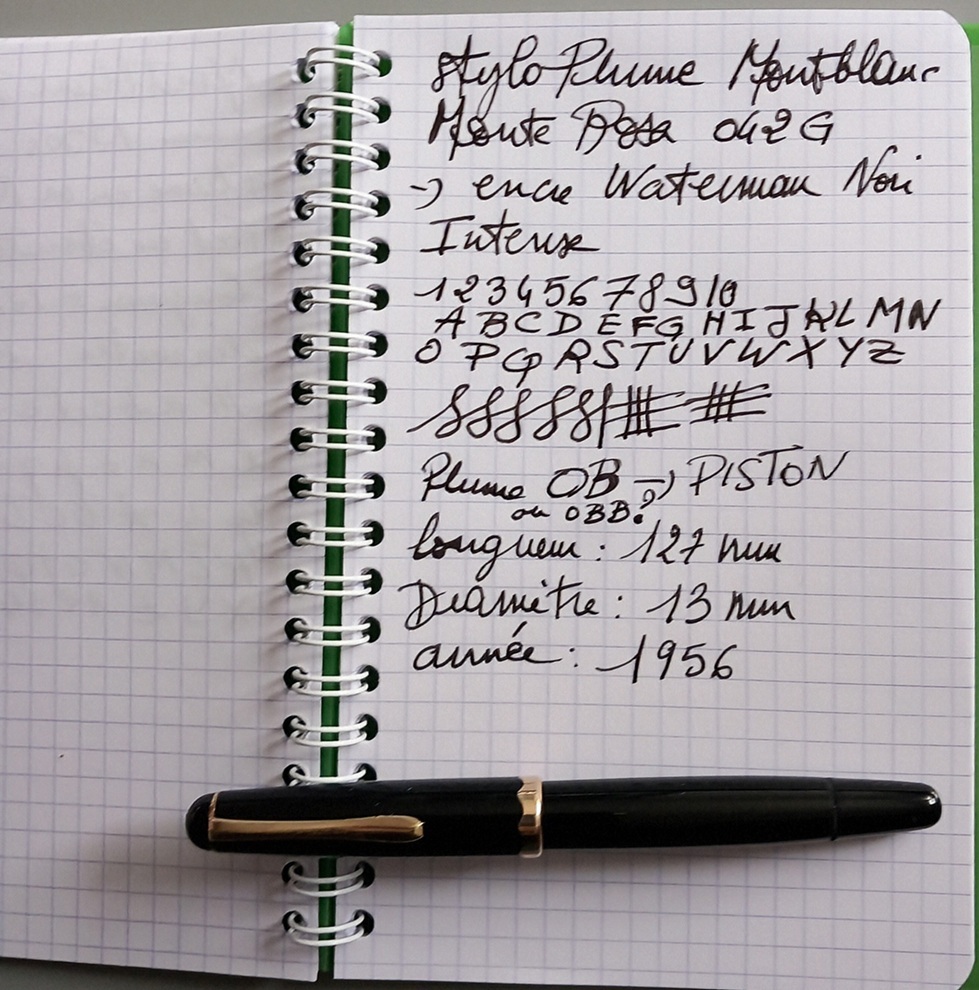 Stylo Plume Montblanc
Monte Rosa 042 G
→ encre Waterman Noir
Intense
1 2 3 4 5 6 7 8 9 10
A B C D E F G H I J K L M N
O P Q R S T U V W X Y Z
Plume OB → PISTON
ou OBB?
longueur : 127 mm
Diamètre : 13 mm
année : 1956